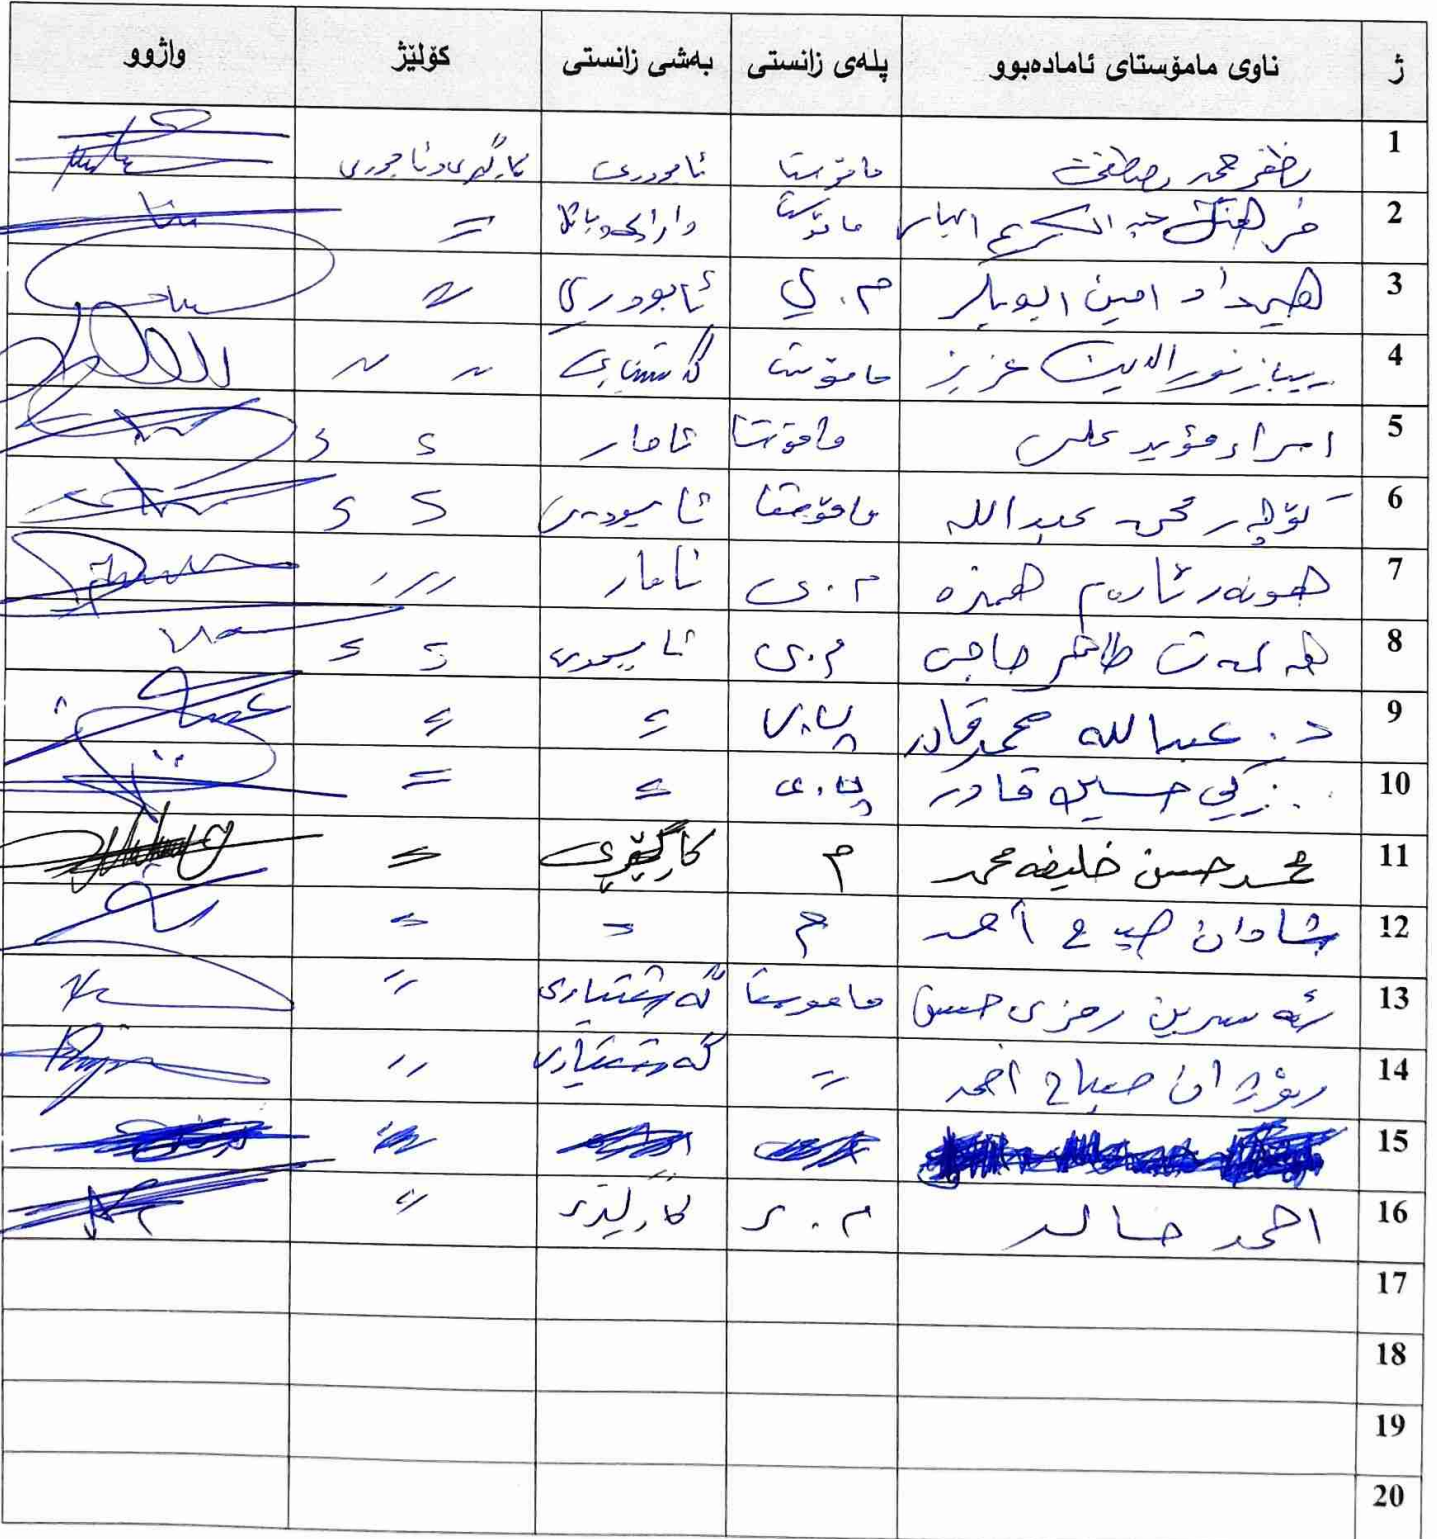 ژ ناوی مامۆستای ئامادەبوو پلەی زانستی بەشی زانستی کۆلێژ واژوو
1 ظفر محمد مصطفى مامۆستا ئابووری کارگێری و ئابووری
2 فرهنگ عبد الكريم مامۆستا دارایی و بانک =
3 هیمداد امين ابوبكر م. ی ئابووری 〃
4 ریباز نورالدين عزيز مامۆستا گەشتیاری 〃 〃
5 اسراء مؤيد علي مامۆستا ئامار 〃 〃
6 محمد عبدالله مامۆستا ئابووری 〃 〃
7 هونەر ئارام همزە م. ی ئامار 〃
8 طاهر حاجی م. ی ئابووری 〃 〃
9 د. عبدالله محمد قادر پ. ی = =
10 زكي حسين قادر پ. ی = =
11 محمد حسن خليفه محمد م کارگێڕی =
12 شادان صباح أحمد م = =
13 نەسرین رمزی حسن ماموستا گەشتیاری 〃
14 ریۆژان صباح احمد 〃 گەشتیاری 〃
15
16 احمد خالد م. ی کارگێری 〃
17
18
19
20